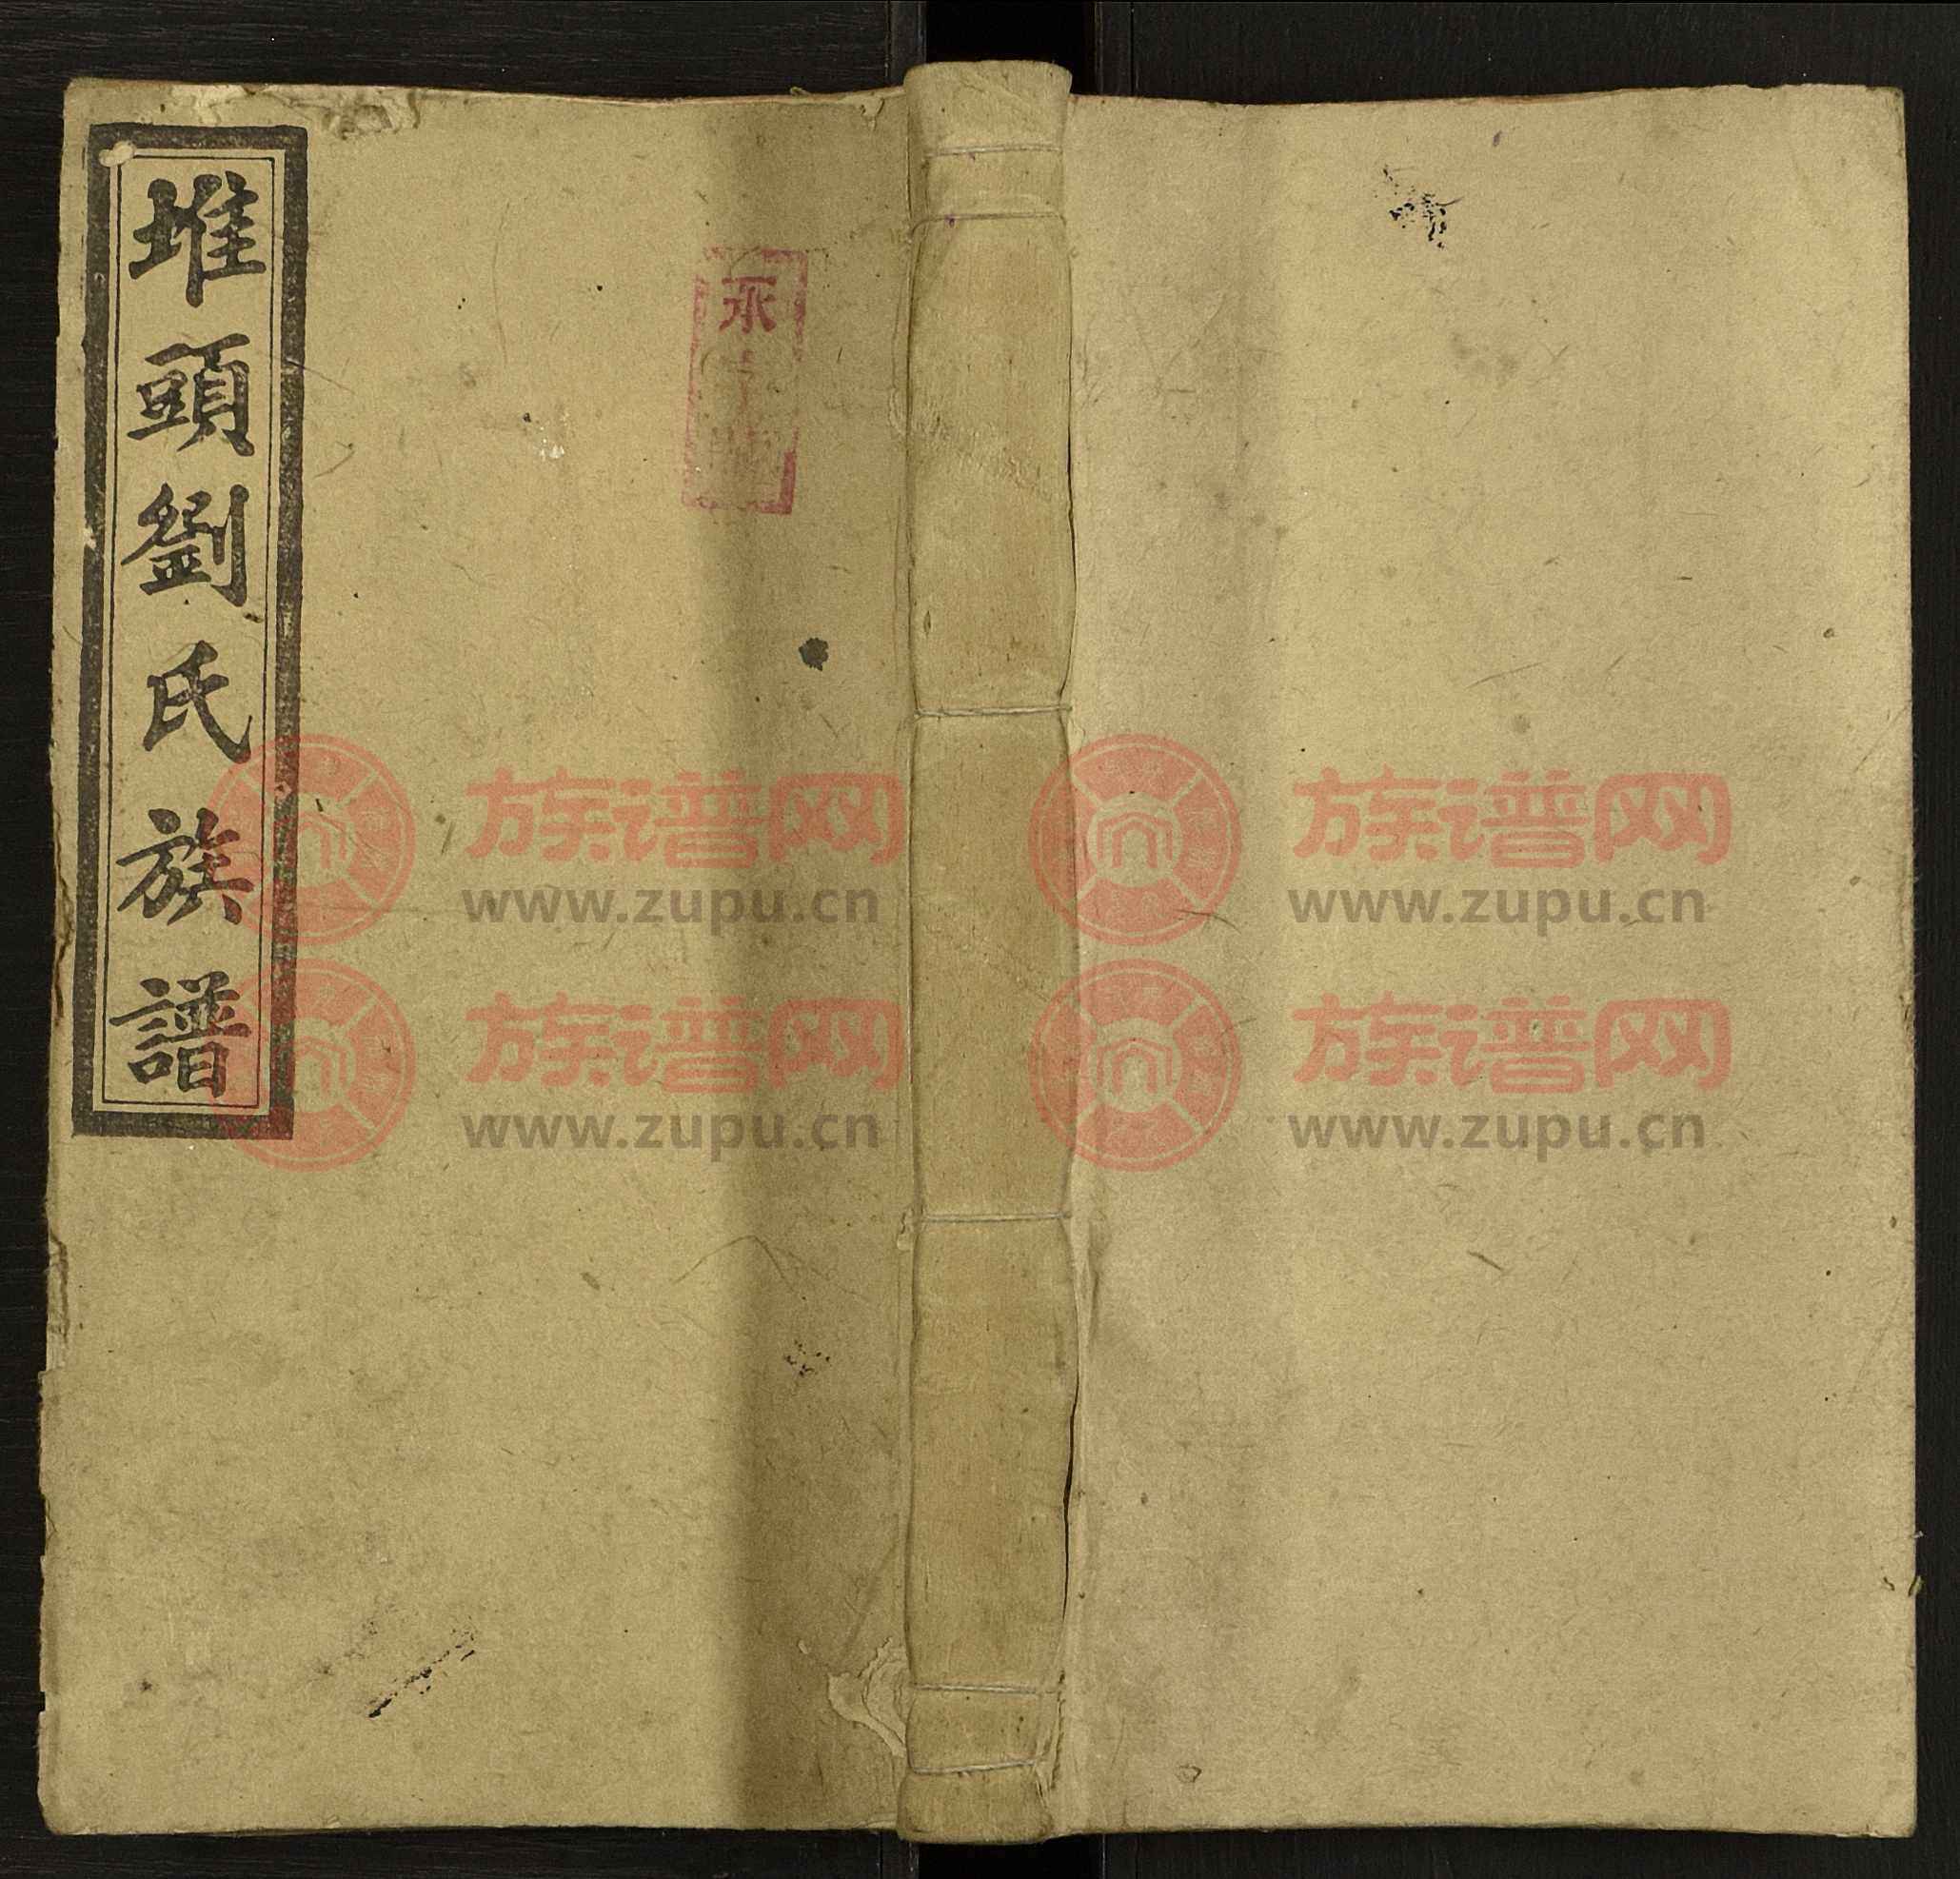 堆頭劉氏族譜
永
族谱网
www.zupu.cn
族谱网
www.zupu.cn
族谱网
www.zupu.cn
族谱网
www.zupu.cn